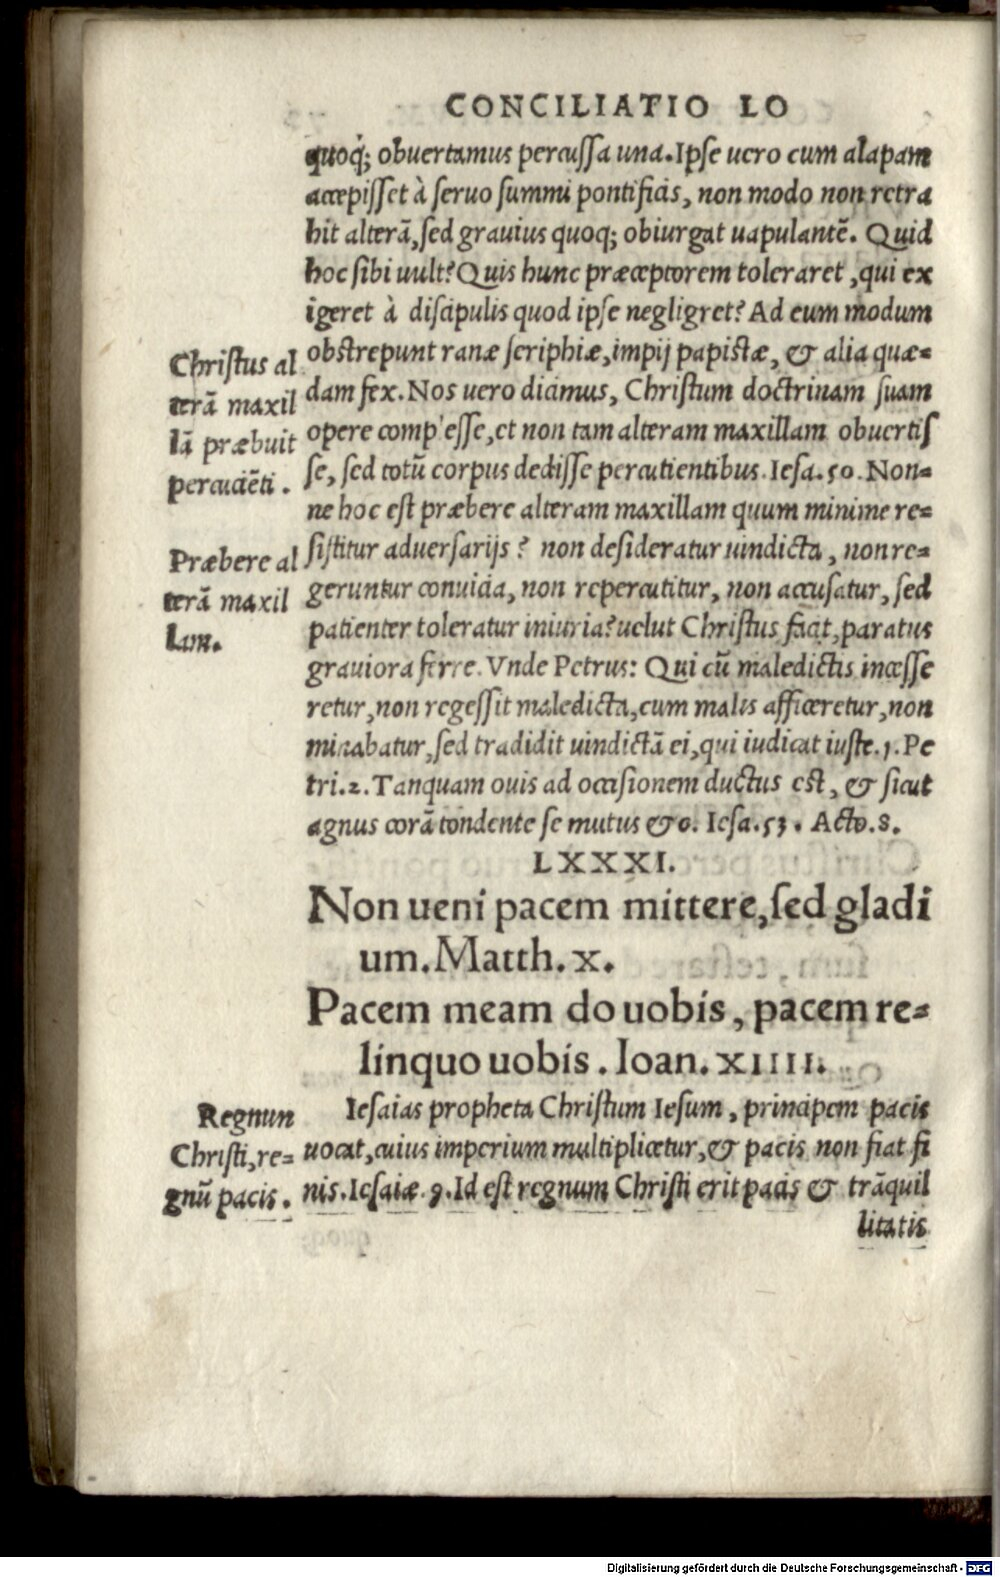 CONCILIATIO LO
quoq; obuertamus percussa una. Ipse uero cum alapam
accepisset à seruo summi pontificis, non modo non retra
hit alterã, sed grauius quoq; obiurgat uapulantẽ. Quid
hoc sibi uult? Quis hunc præceptorem toleraret, qui ex
igeret à discipulis quod ipse negligret? Ad eum modum
obstrepunt ranæ seriphiæ, impij papistæ, & alia quæ-
dam fex. Nos uero dicimus, Christum doctrinam suam
opere comp'esse, et non tam alteram maxillam obuertis
se, sed totũ corpus dedisse percutientibus. Iesa. 50. Non-
ne hoc est præbere alteram maxillam quum minime re-
sistitur aduersarijs? non desideratur uindicta, non re-
geruntur conuicia, non repercutitur, non accusatur, sed
patienter toleratur iniuria? uelut Christus facit, paratus
grauiora ferre. Vnde Petrus: Qui cũ maledictis incesse
retur, non regessit maledicta, cum malis afficeretur, non
minabatur, sed tradidit uindictã ei, qui iudicat iuste. 1. Pe
tri. 2. Tanquam ouis ad occisionem ductus est, & sicut
agnus corã tondente se mutus &c. Iesa. 53. Acto. 8.
Christus al
terã maxil
lã præbuit
percuciẽti.
Præbere al
terã maxil
lam.
LXXXI.
Non ueni pacem mittere, sed gladi
um. Matth. X.
Pacem meam do uobis, pacem re-
linquo uobis. Ioan. XIIII.
Iesaias propheta Christum Iesum, principem pacis
uocat, cuius imperium multiplicetur, & pacis non fiat fi
nis. Iesaiæ. 9. Id est regnum Christi erit pacis & trãquil
litatis
Regnun
Christi, re-
gnũ pacis.
Digitalisierung gefördert durch die Deutsche Forschungsgemeinschaft - DFG